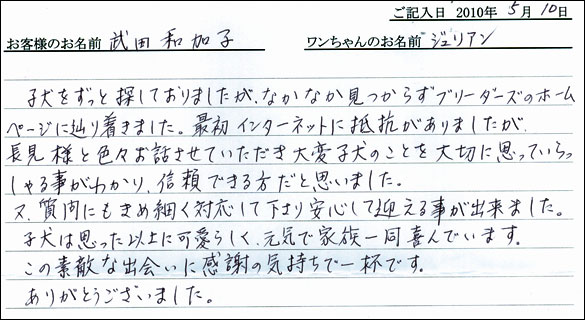 ご記入日 2010年 5月 10日
お客様のお名前 武田和加子 ワンちゃんのお名前 ジュリアン
子犬をずっと探しておりましたが、なかなか見つからずブリーダーズのホーム
ページに辿り着きました。最初インターネットに抵抗がありましたが、
長見様と色々お話させていただき大変子犬のことを大切に思っていらっ
しゃる事がわかり、信頼できる方だと思いました。
又、質問にもきめ細く対応して下さり安心して迎える事が出来ました。
子犬は思った以上に可愛らしく、元気で家族一同喜んでいます。
この素敵な出会いに感謝の気持ちで一杯です。
ありがとうございました。